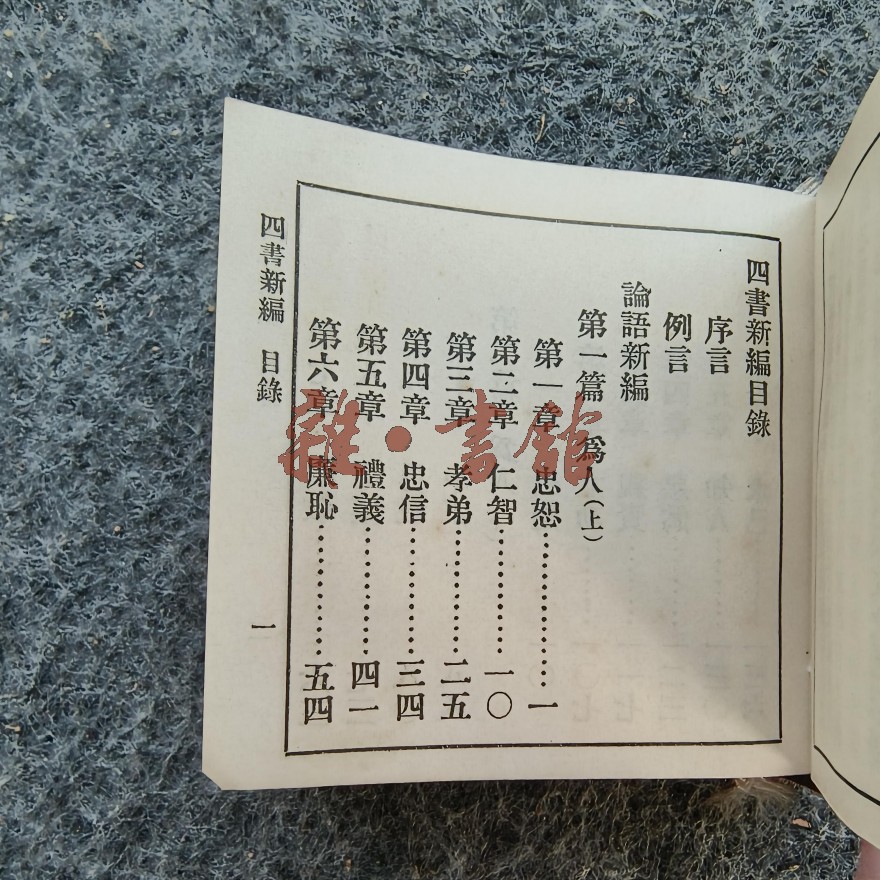 四書新編目錄
序言
例言
論語新編
第一篇 爲人(上)
第一章 忠恕⋯⋯⋯⋯⋯一
第二章 仁智⋯⋯⋯⋯一〇
第三章 孝弟⋯⋯⋯⋯二五
第四章 忠信⋯⋯⋯⋯三四
第五章 禮義⋯⋯⋯⋯四一
第六章 廉恥⋯⋯⋯⋯五四
四書新編 目錄
一
雜·書館